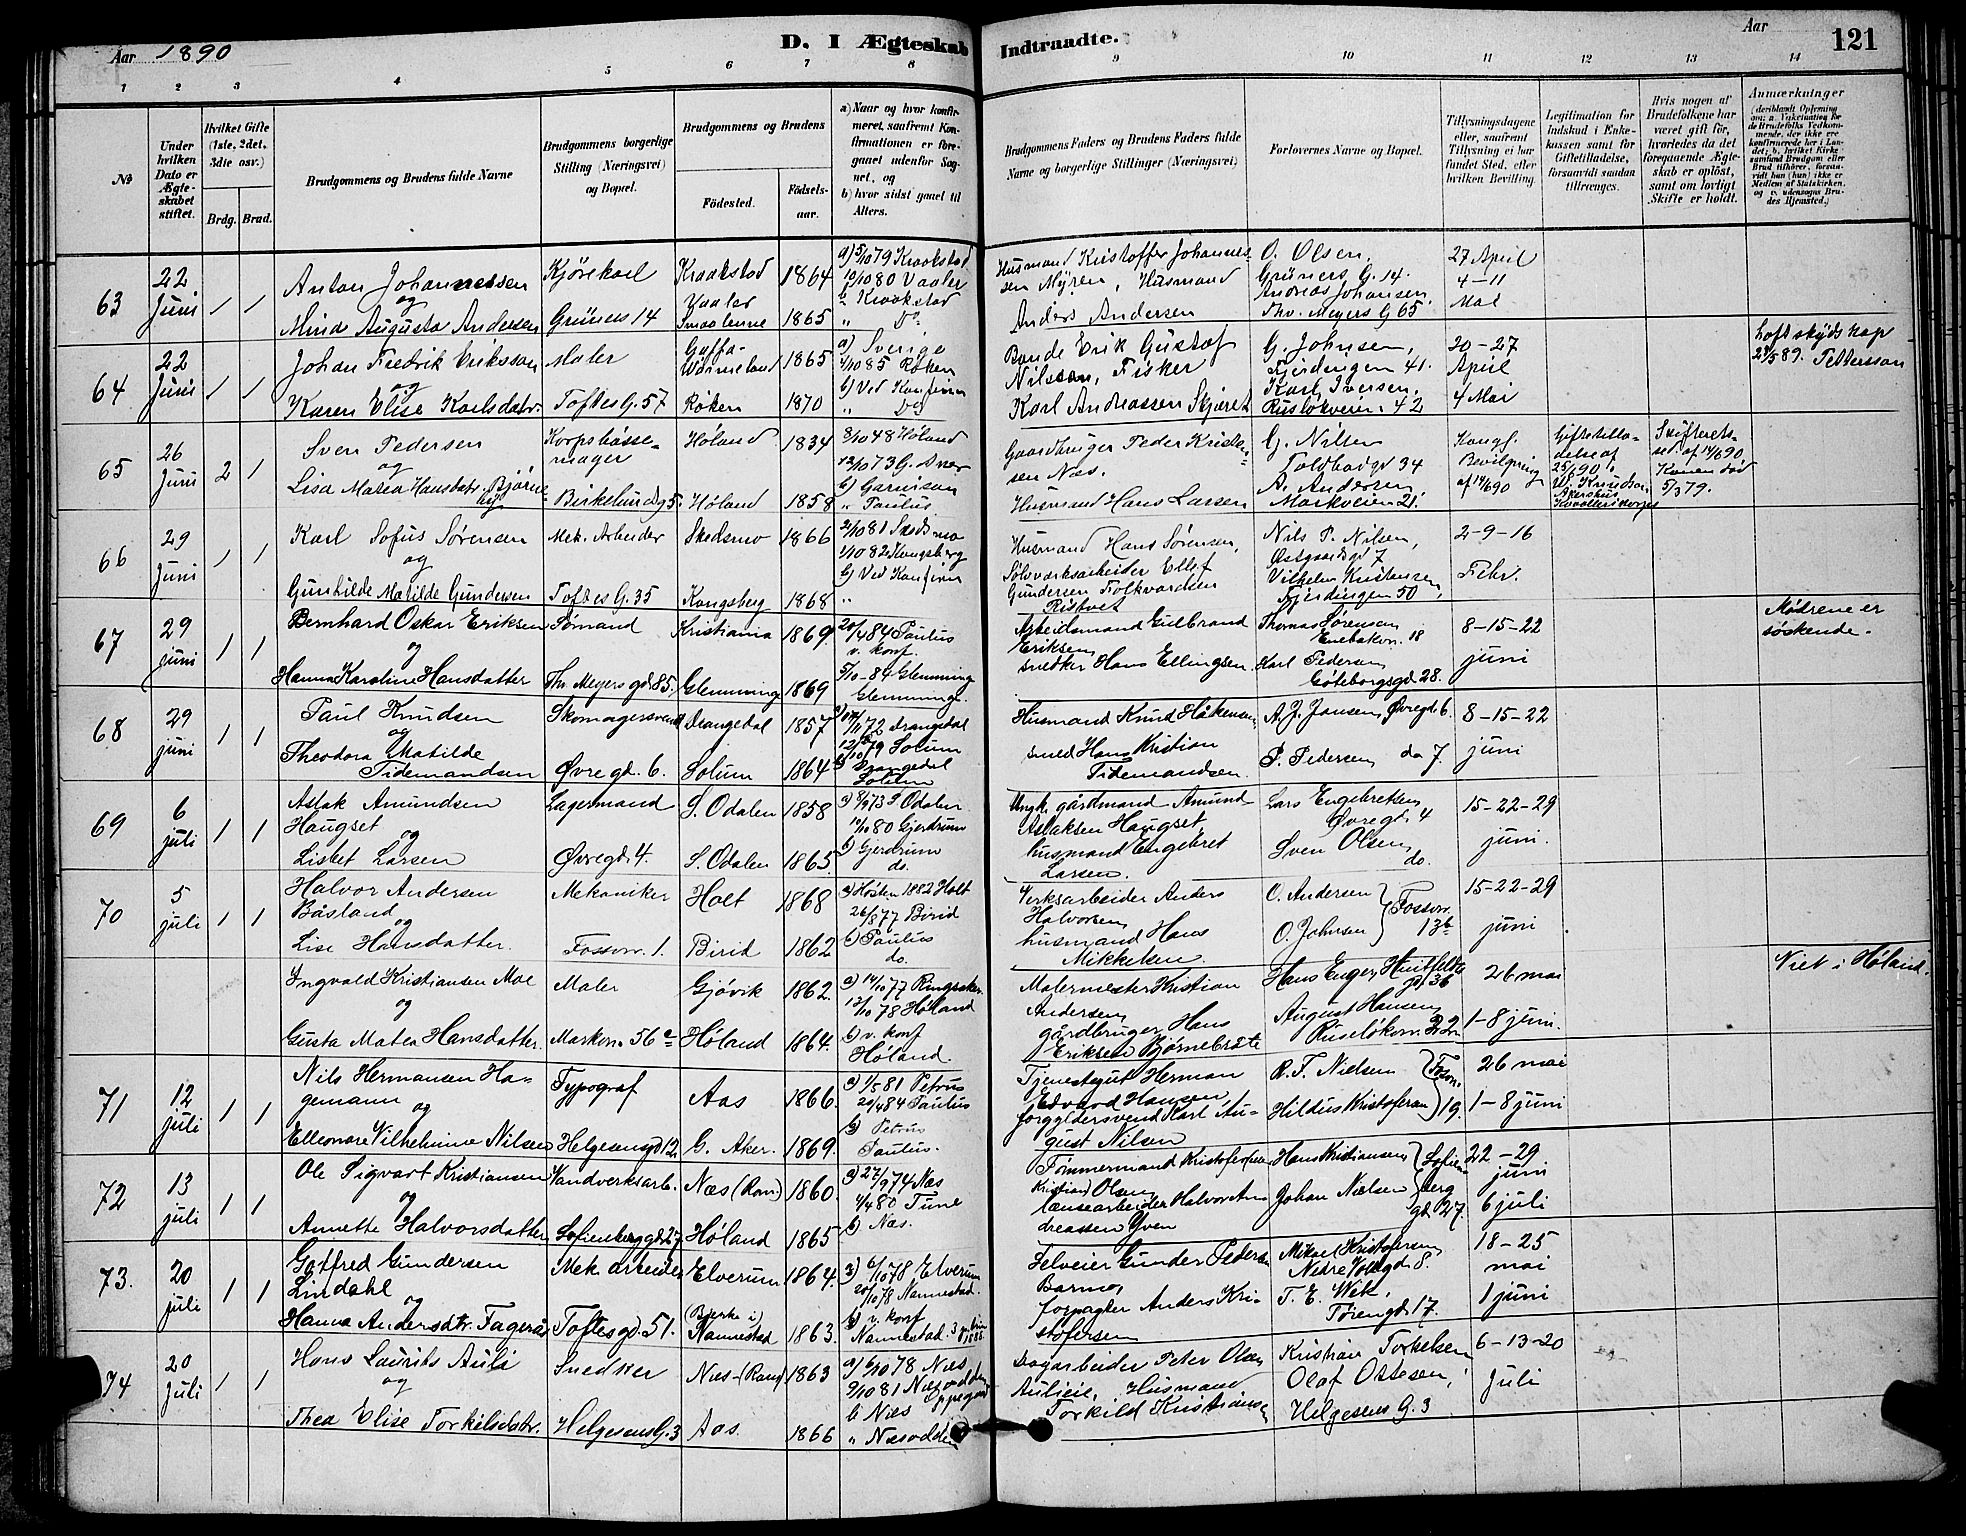 Aar 1890
D. I Ægteskab Indtraadte.
Aar
121
1 2 3 4 5 6 7 8 9 10 11 12 13 14
No
Under hvilken Dato er Ægteskabet stiftet.
Hvilket Gifte (1ste, 2det, 3dte osv.)
Brdg. Brud.
Brudgommens og Brudens fulde Navne
Brudgommens borgerlige Stilling (Næringsvei) og Bopæl.
Brudgommens og Brudens
Fødested.
Fødselsaar.
a) Naar og hvor konfirmeret, saafremt Konfirmationen er foregaaet udenfor Sognet, og
b) hvor sidst gaaet til Alters.
Brudgommens Faders og Brudens Faders fulde Navne og borgerlige Stillinger (Næringsvei)
Forlovernes Navne og Bopæl.
Tillysningsdagene eller, saafremt Tillysning ei har fundet Sted, efter hvilken Bevilling.
Legitimation for Indskud i Enkekassen samt for Giftetilladelse, forsaavidt saadan tiltrænges.
Hvis nogen af Brudefolkene har været gift før, hvorledes da det foregaaende Ægteskab er opløst, samt om lovligt Skifte er holdt.
Anmærkninger
63 22 Juni 1 1
Anton Johannessen
og
Mina Augusta Andersen
Kjørekarl
Grüners 14
Kraakstad 1864
Vaaler Smaalenene 1865
a) 5/10 79 Kraakstad
10/10 80 Vaaler
b Kraakstad
" Do
Husmand Kristoffer Johannessen Myren, Husmand
Anders Andersen
O. Olsen,
Grüners G. 14.
Andreas Johansen,
Thv. Meyers G 65
27 April
4-11
Mai
64 22 Juni 1 1
Johan Fredrik Eriksson
og
Karen Elise Karlsdatr.
Maler
Toftes G. 57
Wärmeland 1865
Røken 1870
a) Sverige
4/10 85 Røken
b) Ved Konfirm
" Do
Bonde Erik Gustaf
Nilsson, Fisker
Karl Andreassen Skjæret
G. Johnsen,
Fjerdingen 41.
Karl Iversen,
Ruseløkveien 42
20-27
April
4 Mai
Pettersson
65 26 Juni 2 1
Sven Pedersen
og
Lisa Matea Hansdatr. Bjørneby
Korpsbøssemager
Birkelundg 5.
Høland 1834
Høland 1858
8/10 48 Høland
b) Garnison
" Paulus
Gaardbruger Peder Kristensen Næs.
Husmand Hans Larsen
G. Nilsen
Toldbodgd 34
A. Andersen
Markveien 21.
Kongl. Bevilgning af 14/6 90
Giftetilladelse af
25/6 90
Akershus
Skifterets-
af 14/6 90
Konen død
5/3 79.
66 29 Juni 1 1
Karl Sofus Sørensen
og
Gunhilde Matilde Gundersen
Mek. Arbeider
Toftes G. 35
Skedsmo 1866
Kongsberg 1868
2/10 81 Skedsmo
1/10 82 Kongsberg
b) Ved Konfirm
"
Husmand Hans Sørensen,
Sølvværksarbeider Ellef
Gundersen Folkvardsen
Ristvet
Nils P. Nilsen,
Østgaardsgd 7
Vilhelm Kristensen,
Fjerdingen 50
2-9-16
Febr.
67 29 juni 1 1
Bernhard Oskar Eriksen
og
Hanna Karoline Hansdatter
Sømand
Th. Meyers gd 85.
Kristiania 1869
Glemminge 1869
20/4 84 Paulus
v. konf.
5/10-84 Glemminge
Glemminge.
Arbeidsmand Gulbrand
Eriksen
snedker Hans Ellingsen.
Thomas Sørensen
Enebakv. 18
Karl Pedersen
Göteborgsgd 28.
8-15-22
juni
Mødrene er
søskende.
68 29 juni 1 1
Paul Knudsen
og
Theodora Matilde
Tidemandsen
Skomagersvend
Øvregd. 6.
Drangedal 1857
Solum 1864
Drangedal
Solum
b) Drangedal
Solum
Husmand Knud Håkensen
smed Hans Kristian
Tidemandsen.
A. J. Jansen, Øvregd. 6.
P. Pedersen do 7.
8-15-22
juni
69 6 juli 1 1
Aslak Amundsen
Haugset
og
Lisbet Larsen
Lagermand
Øvregd. 4.
S. Odalen 1858
S. Odalen 1865
S Odalen
10/10 80 Gjerdrum
b) Gjerdrum
do.
Ungk. gårdmand Amund
Aslaksen Haugset,
husmand Engebret
Larsen.
Lars Engebretsen
Øvregd. 4
Sven Olsen
do.
15-22-29
juni.
70 5 juli 1 1
Halvor Andersen
Båsland
og
Lise Hansdatter.
Mekaniker
Fossvn. 1.
Holt 1868
Birid 1862
a) Høsten 1882 Holt
26/8 77 Birid
b) Paulus
do.
Verksarbeider Anders
Halvorsen
husmand Hans
Mikkelsen.
O. Andersen
O. Johnsen
Fossvn. 13b
15-22-29
juni
Ingvald Kristiansen Moe
og
Gusta Matea Hansdatter.
Maler
Markvn. 56c
Gjövik 1862.
Höland 1864.
a) 14/10 77 Ringsaker.
13/10 78 Höland
b) v. konf
Höland.
Malermester Kristian
Andersen
gårdbruger Hans
Eriksen Bjørnebråte
Hans Enger, Huitfeldts gd. 36
August Hansen
Ruseløkvn. 22
26 mai
1-8 juni.
Viet i Høland.
71 12 juli 1 1
Nils Hermansen Hagemann
og
Elleonore Vilhelmine Nilsen
Typograf
Helgesensgd 12.
Aas 1866.
G. Aker. 1869.
a) 1/5 81 Petrus
20/4 84 Paulus
b) Petrus
Paulus.
Tjenestegut Herman
Edvard Hansen
forgyldersvend Karl August Nilsen
R. F. Nielsen
Hildus Kristofersen
Fossvn. 19.
26 mai
1-8 juni
72 13 juli 1 1
Ole Sigvart Kristiansen
og
Annette Halvorsdatter
Vandverksarb.
Sofienberggd 27
Næs (Rom) 1860.
Høland 1865
a) 27/9 74 Næs
4/4 80 Tune
b) Næs.
Tømmermand Kristofer
Kristian Olsen
lænsearbeider Halvor Andreassen Yven
Hans Kristiansen
Johan Nielsen
Sofienberg gd 27.
22-29
juni
6 juli
73. 20 juli 1 1
Gotfred Gundersen
Lindahl
og
Hanna Andersdtr. Fagerås
Mek. arbeider
Toftesgd. 51.
Elverum 1864.
(Bjerke i)
Nannestad 1863.
a) 6/10 78 Elverum
20/10 78 Nannestad.
b) v. konf
Nannestad.
Selveier Gunder Pedersen
Barmo,
forpagter Anders Kristofersen
Mikael Kristofersen
Nedre Voldgd. 8.
T. E. Wik,
Tøiengd. 17.
18-25
mai
1 juni
74 20 Juli 1 1
Hans Laurits Auli
og
Thea Elise Torkilsdatr.
Snedker
Helgesens G. 3
Næs-(Rom) 1863
Aas. 1866
a) 6/10 78 Næs
9/10 81 Næsodden
Oppegaard
b Næs
" Næsodden
Dagarbeider Peter Olsen
Aulieie, Husmand
Torkild Kristiansen
Kristian Torkelsen
Olaf Ottesen,
Helgesens G. 3
6-13-20
Juli